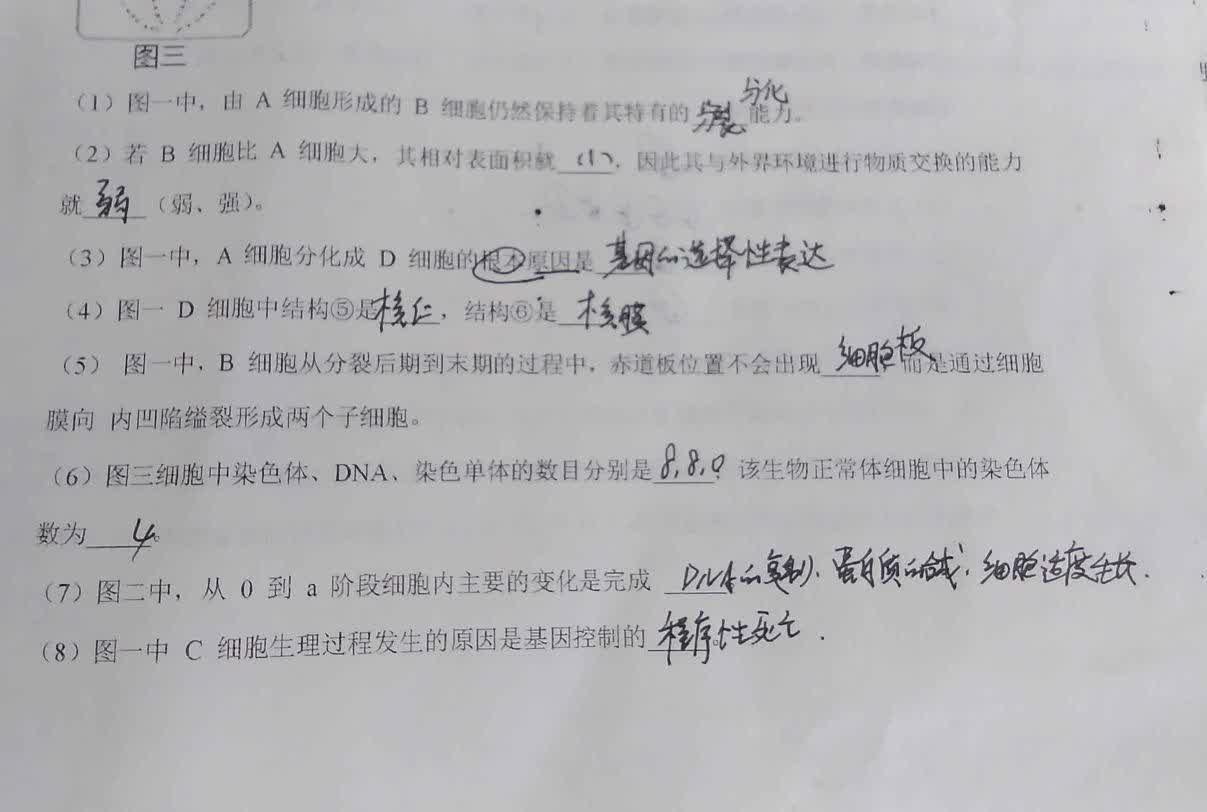 图三
(1)图一中，由 A 细胞形成的 B 细胞仍然保持着其特有的 分裂 分化 能力。
(2)若 B 细胞比 A 细胞大，其相对表面积就 小 ，因此其与外界环境进行物质交换的能力
就 弱 (弱、强)。
(3)图一中，A 细胞分化成 D 细胞的根本原因是 基因的选择性表达
(4)图一 D 细胞中结构⑤是 核仁 ，结构⑥是 核膜
(5) 图一中，B 细胞从分裂后期到末期的过程中，赤道板位置不会出现 细胞板 而是通过细胞
膜向 内凹陷缢裂形成两个子细胞。
(6)图三细胞中染色体、DNA、染色单体的数目分别是 8,8,0 ，该生物正常体细胞中的染色体
数为 4 。
(7)图二中，从 0 到 a 阶段细胞内主要的变化是完成 DNA的复制、蛋白质的合成；细胞适度生长.
(8)图一中 C 细胞生理过程发生的原因是基因控制的 程序性死亡 .